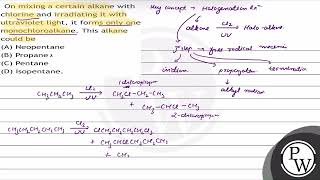 On mixing a certain alkane with
chlorine and irradiating it with
ultraviolet light, it forms only one
monochloroalkane. This alkane
could be
(A) Neopentane
(B) Propane x
(C) Pentane
(D) Isopentane.
Key concept → Halogenation Rxn
alkane Cl₂ UV Halo alkane.
3 step → free radical mecanis
inidium propogation termination
alkyl radical
CH₃CH₂CH₃ Cl₂ UV CH₂Cl-CH₂-CH₃
1 chloropropane
+ CH₃-CHCl-CH₃
2-chloropropane
CH₃CH₂CH₂CH₂CH₃ Cl₂ UV ClCH₂CH₂CH₂CH₂CH₃
+ CH₃CHClCH₂CH₂CH₃
+ CH₃
PW